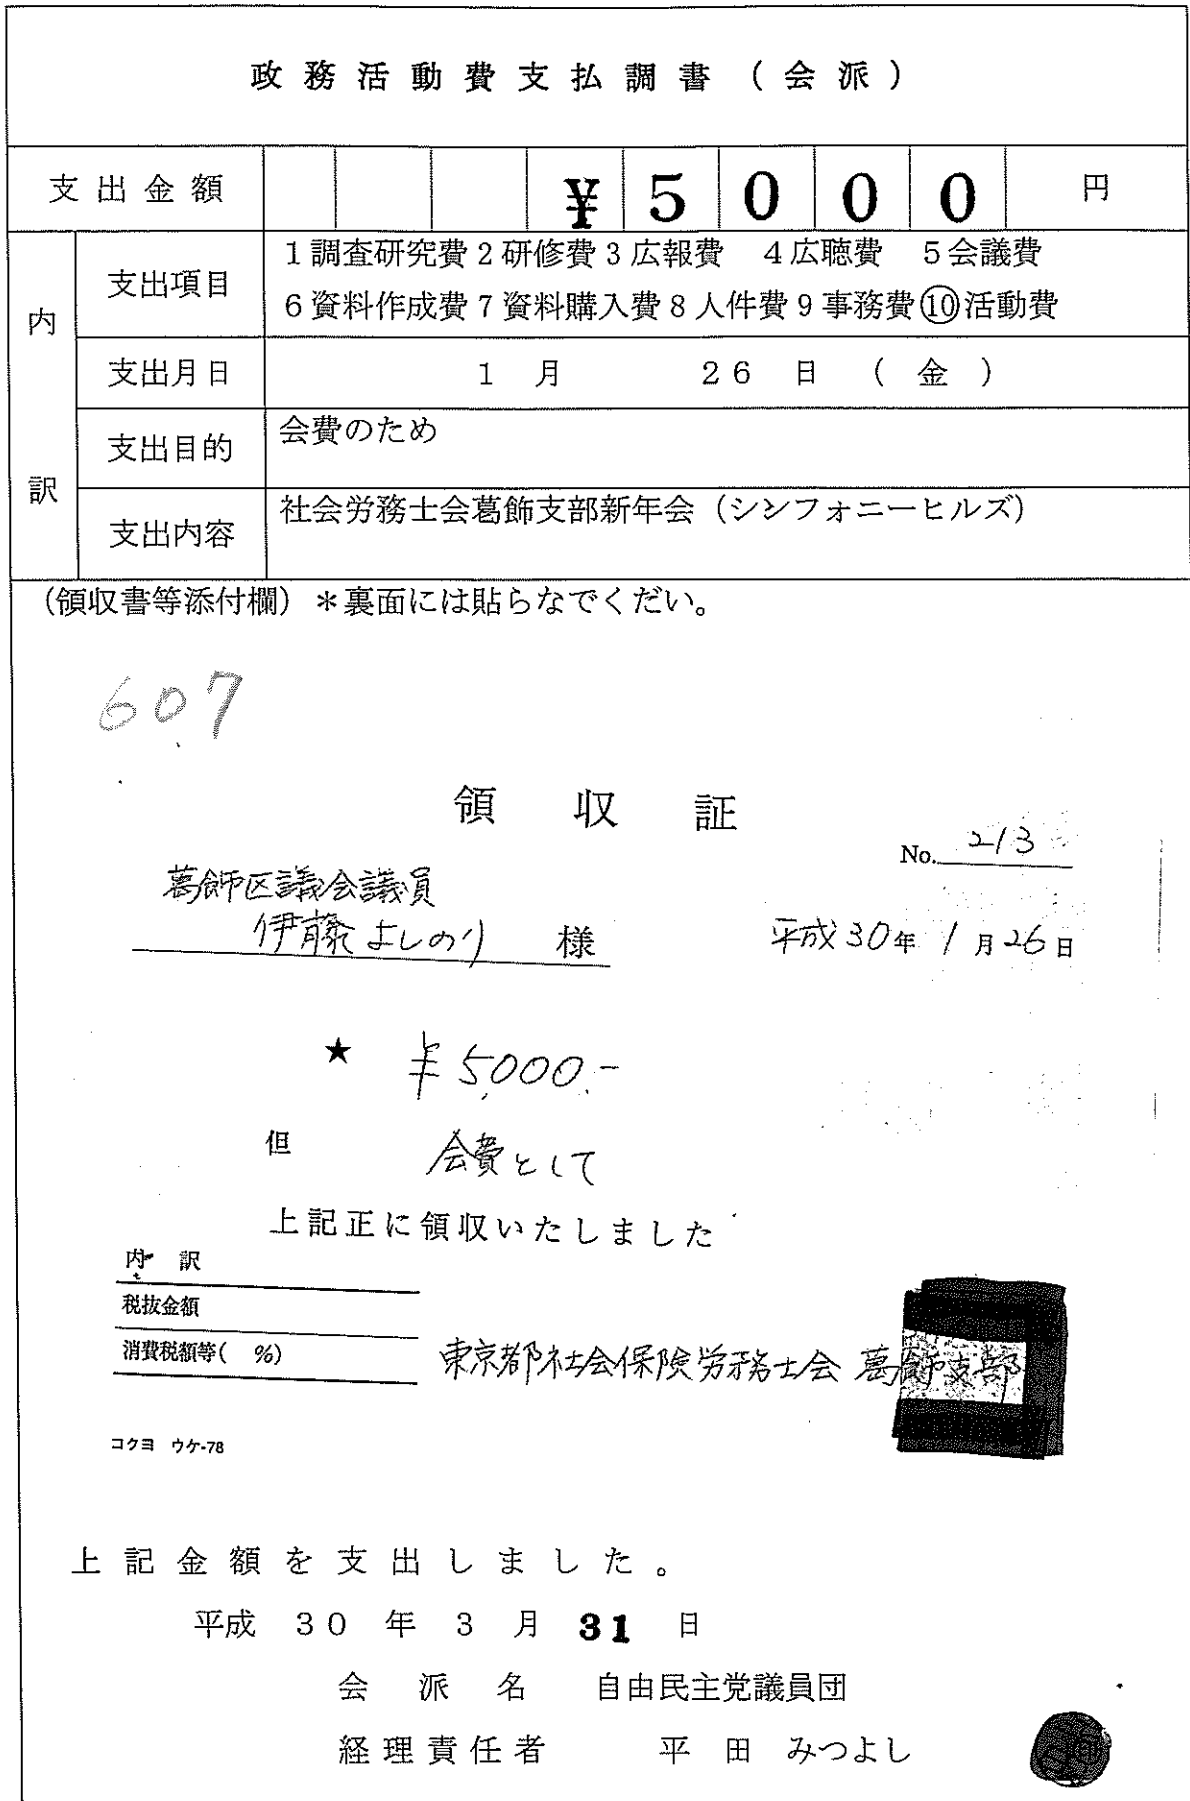 政務活動費支払調書（会派）
支出金額 ¥5000 円
内訳
支出項目 1調査研究費2研修費3広報費 4広聴費 5会議費
6資料作成費7資料購入費8人件費9事務費⑩活動費
支出月日 1月 26日（金）
支出目的 会費のため
支出内容 社会労務士会葛飾支部新年会（シンフォニーヒルズ）
（領収書等添付欄）＊裏面には貼らなでくだい。
607
領収証
No. 213
葛飾区議会議員
伊藤よしのり 様 平成30年1月26日
★ ¥5,000.-
但 会費として
上記正に領収いたしました
内訳
税抜金額
消費税額等( %)
東京都社会保険労務士会 葛飾支部
コクヨ ウケ-78
上記金額を支出しました。
平成 30年 3月 31日
会派名 自由民主党議員団
経理責任者 平田 みつよし